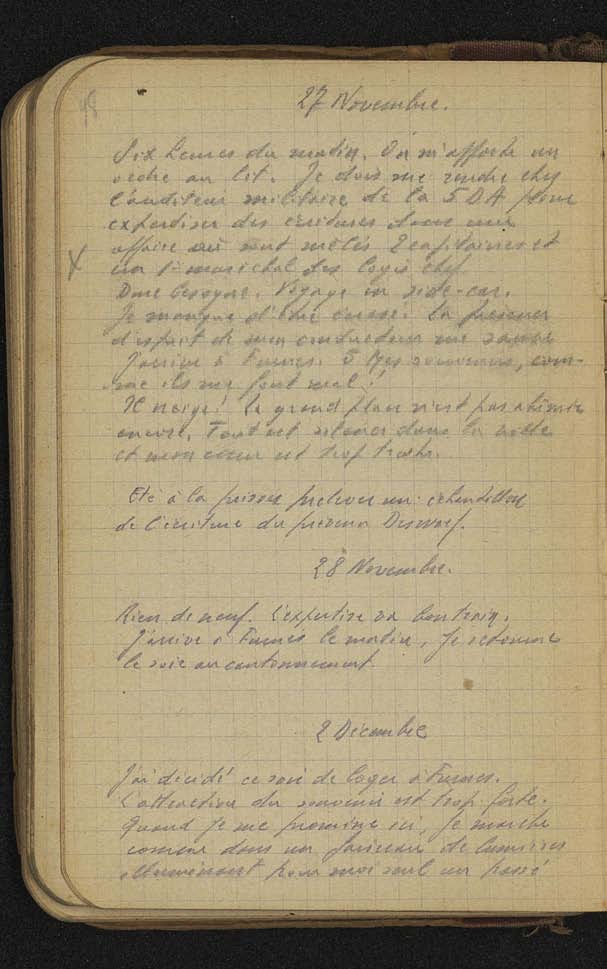 48
27 Novembre.
Six heures du matin. On m'apporte un
ordre au lit. Je dois me rendre chez
l'auditeur militaire de la 5 DA pour
expertiser des écritures dans une
affaire où sont mêlés 2 capitaines et
X un 1er maréchal des logis chef.
Dure besogne. Voyage en side-car.
Je manque d'être cassé. La présence
d'esprit de mon conducteur me sauve
J'arrive à Furnes. Ô Mes souvenirs, com-
me ils me font mal!
Il neige! La grand place n'est pas abîmée
encore. Tout est silence dans la ville
et mon cœur est trop triste.
Été à la prison prélever un échantillon
de l'écriture du prévenu
28 Novembre.
Rien de neuf. L'expertise va bon train.
J'arrive à Furnes le matin, je retourne
le soir au cantonnement
2 Décembre
J'ai décidé ce soir de loger à Furnes.
L'attraction du souvenir est trop forte.
Quand je me promène ici, je marche
comme dans un faisceau de lumières
illuminant pour moi seul un passé